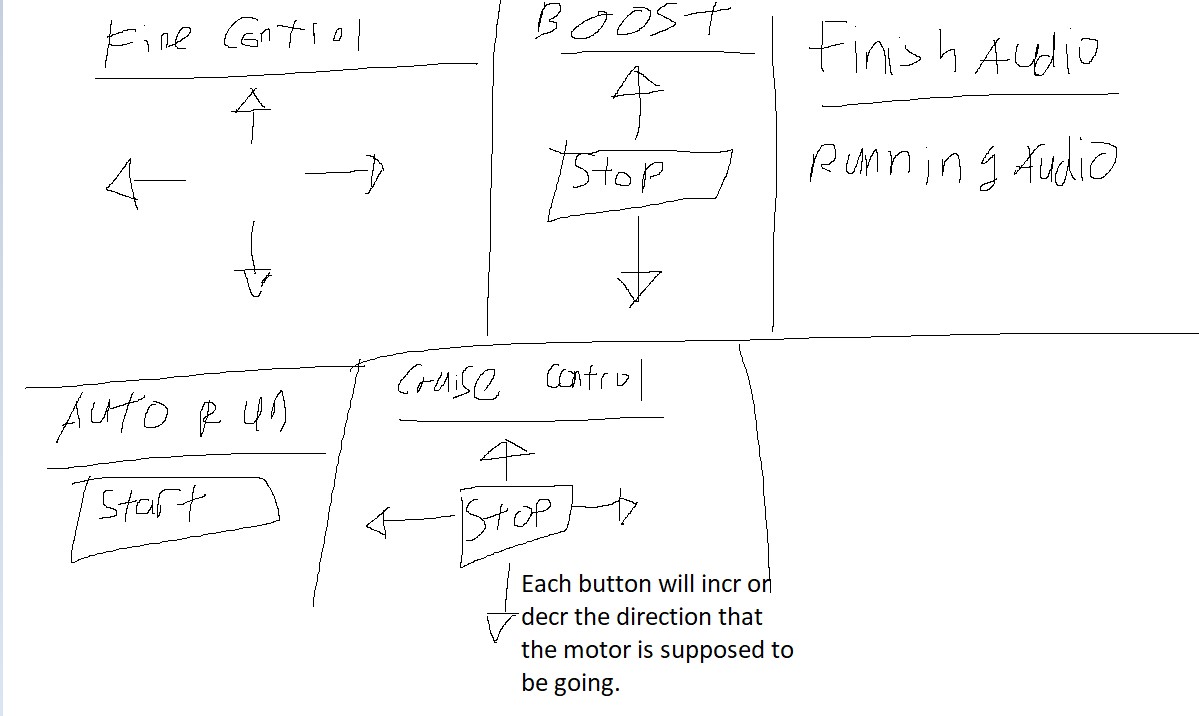 Fine Control
BOOST
Stop
Finish Audio
Running Audio
Auto Run
Start
Cruise Control
Stop
Each button will incr or
decr the direction that
the motor is supposed to
be going.